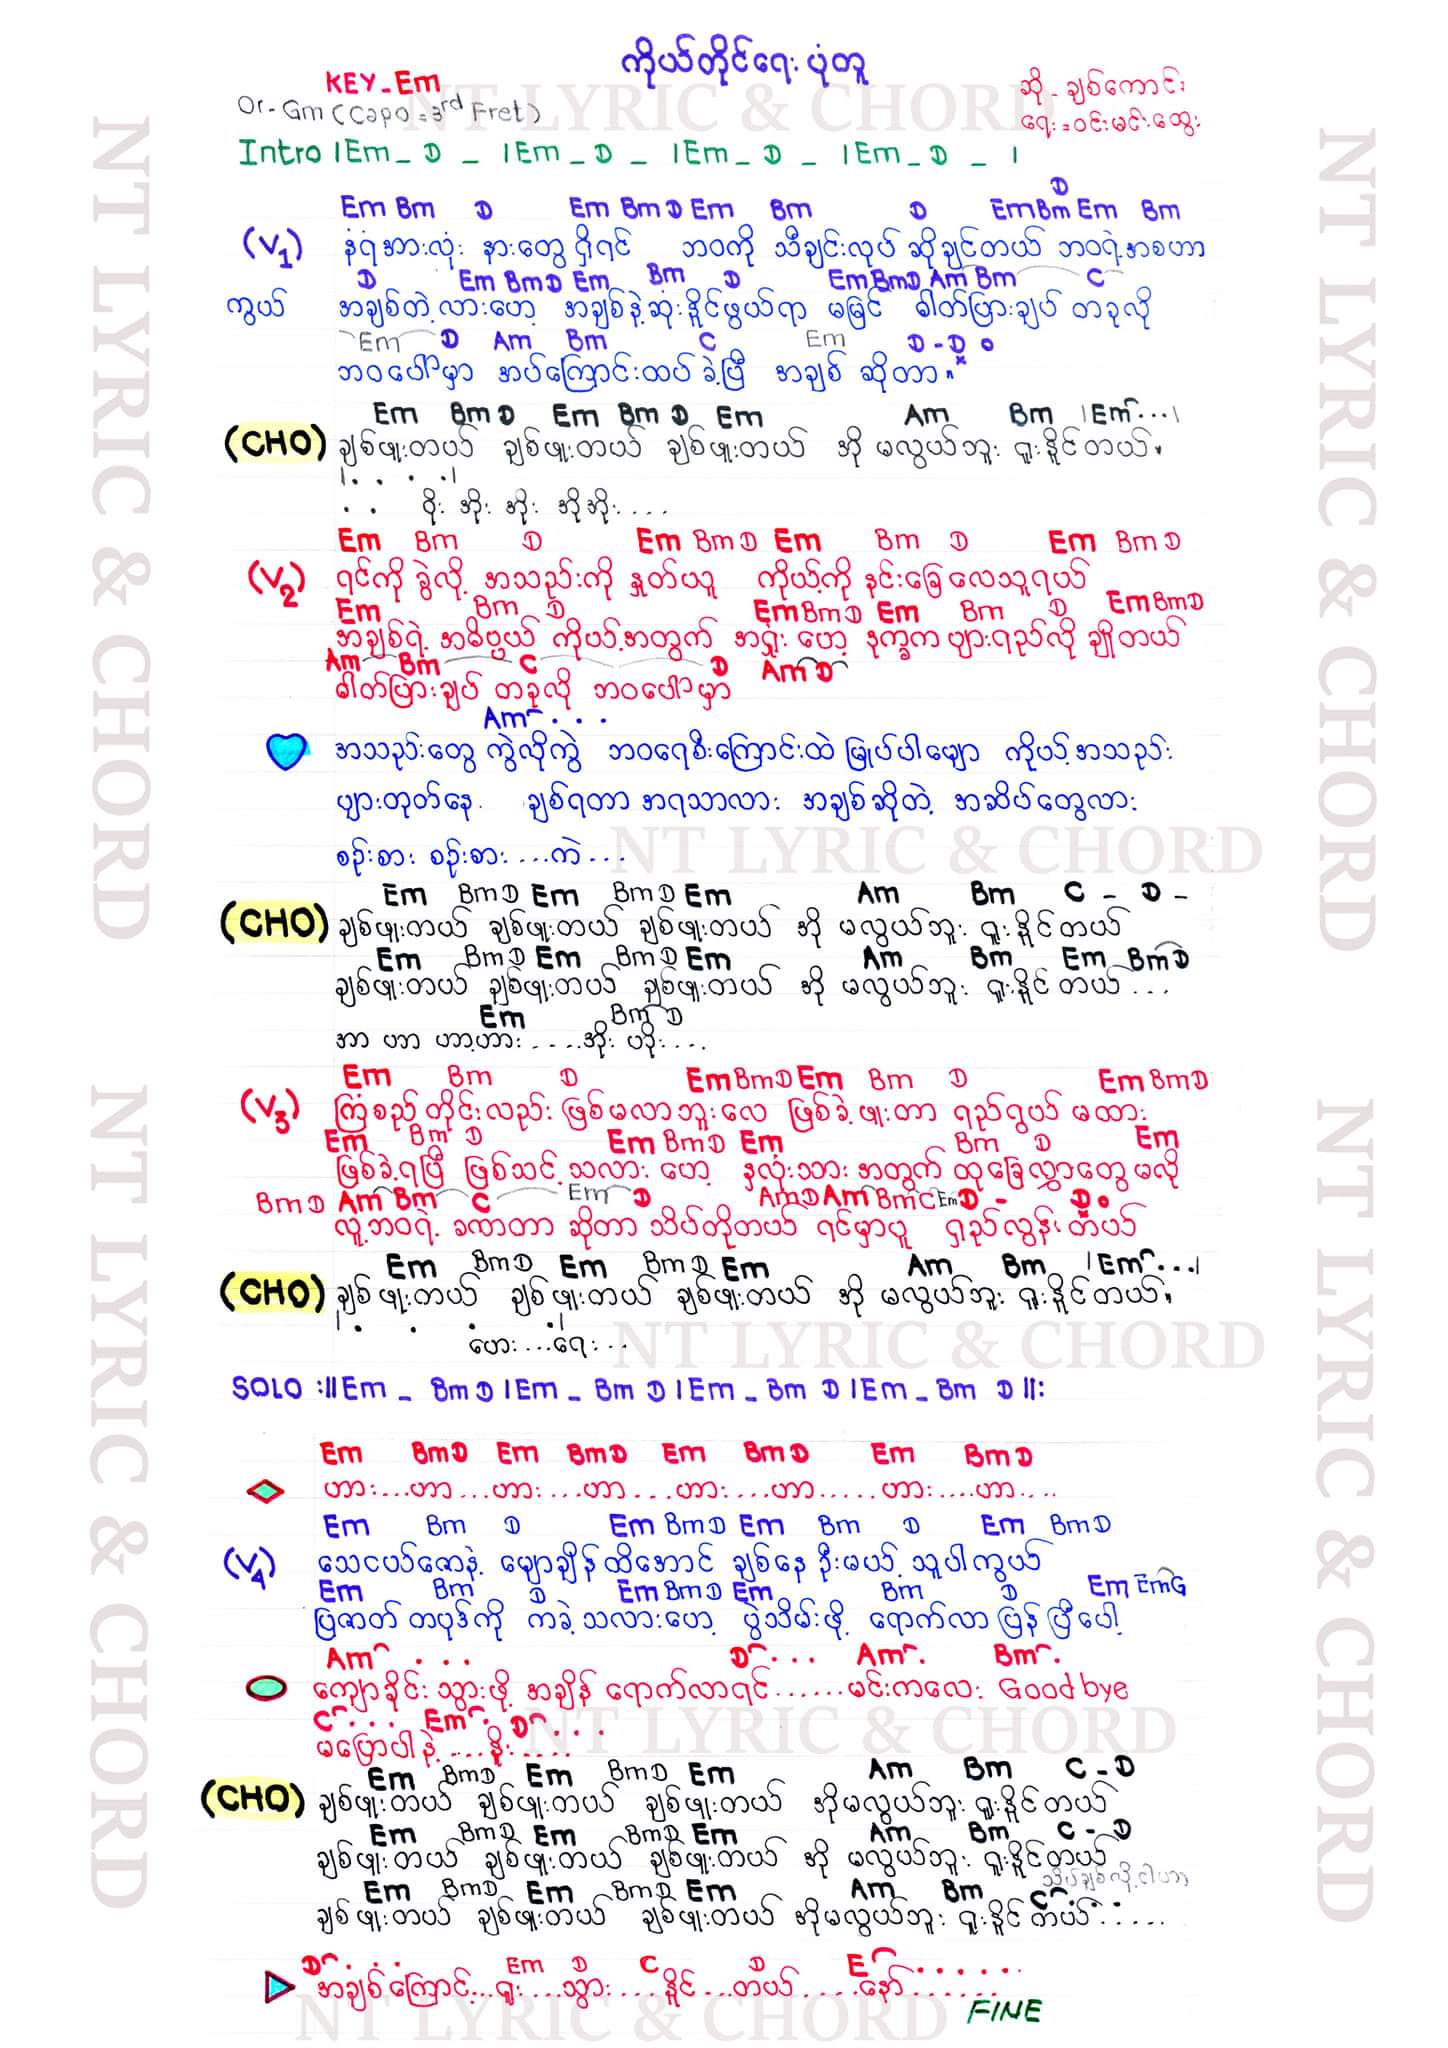 ကိုယ်တိုင်ရေး ပုံတူ
KEY - Em
Or - Gm (Capo = 3rd Fret)
ဆို - ချစ်ကောင်း
ရေး = ဝင်းမင်းထွေး
Intro | Em _ D _ | Em _ D _ | Em _ D _ | Em _ D _ |
Em Bm D Em Bm D Em Bm D Em Bm D Em Bm
(V1) နံရံအားလုံး နားတွေ ရှိရင် ဘဝကို သီချင်းလုပ် ဆိုချင်တယ် ဘဝရဲ့အစဟာ
D Em Bm D Em Bm D Em Bm D Am Bm C
ကွယ် အချစ်တဲ့လားဟေ့ အချစ်နဲ့ဆုံးနိူင်ဖွယ်ရာ မမြင် ဓါတ်ပြားချပ် တခုလို
Em D Am Bm C Em D - D
ဘဝပေါ်မှာ အပ်ကြောင်းထပ်ခဲ့ပြီ အချစ် ဆိုတာ။
Em Bm D Em Bm D Em Am Bm | Em ... |
(CHO) ချစ်ဖျူးတယ် ချစ်ဖျူးတယ် ချစ်ဖျူးတယ် အို မလွယ်ဘူး ရူးနိူင်တယ်။
| . . . . |
. . ဝိုး အိုး အိုး အိုအိုး ....
Em Bm D Em Bm D Em Bm D Em Bm D
(V2) ရင်ကို ခွဲလို့ အသည်းကို နှုတ်ယူ ကိုယ့်ကို နင်းခြေလေသူရယ်
Em Bm D Em Bm D Em Bm D Em Bm D
အချစ်ရဲ့ အဓိပ္ပယ် ကိုယ့်အတွက် အရှုံး ဟေ့ နက္ခက ပျားရည်လို ချိုတယ်
Am Bm C D Am D
ဓါတ်ပြားချပ် တခုလို ဘဝပေါ်မှာ
Am ...
အသည်းတွေ ကွဲလိုကွဲ ဘဝရေစီးကြောင်းထဲ မြုပ်ပါမျော ကိုယ့်အသည်း
ပျားတုတ်နေ ချစ်ရတာ အရသာလား အချစ်ဆိုတဲ့ အဆိပ်တွေလား
စဉ်းစား စဉ်းစား ...ကဲ ...
Em Bm D Em Bm D Em Am Bm C - D -
(CHO) ချစ်ဖျူးတယ် ချစ်ဖျူးတယ် ချစ်ဖျူးတယ် အို မလွယ်ဘူး ရူးနိူင်တယ်
Em Bm D Em Bm D Em Am Bm Em Bm D
ချစ်ဖျူးတယ် ချစ်ဖျူးတယ် ချစ်ဖျူးတယ် အို မလွယ်ဘူး ရူးနိူင် တယ် ...
Em Bm D
အာ ဟာ ဟာ့ဟား .....အိုး ဟိုး ....
Em Bm D Em Bm D Em Bm D Em Bm D
(V3) ကြံစည် တိုင်းလည်း ဖြစ်မလာဘူးလေ ဖြစ်ခဲ့ဖျူးတာ ရည်ရွယ် မထား
Em Bm D Em Bm D Em Bm D Em
ဖြစ်ခဲ့ရပြီ ဖြစ်သင့်သလား ဟေ့ နှလုံးသား အတွက် ထုခြေလွှာတွေ မလို
Bm D Am Bm C Em D Am D Am Bm C Em D - D
လူ့ဘဝရဲ့ ခဏတာ ဆိုတာ သိပ်တိုတယ် ရင်မှာပူ ရှည်လွန်း တယ်
Em Bm D Em Bm D Em Am Bm | Em ... |
(CHO) ချစ်ဖျူးတယ် ချစ်ဖျူးတယ် ချစ်ဖျူးတယ် အို မလွယ်ဘူး ရူးနိူင်တယ်။
| . . . . |
ဟေး ...ရေး ...
SOLO :|| Em _ Bm D | Em _ Bm D | Em _ Bm D | Em _ Bm D ||:
Em Bm D Em Bm D Em Bm D Em Bm D
ဟား ...ဟာ ...ဟား ...ဟာ ...ဟား ...ဟာ .....ဟား ....ဟာ ....
Em Bm D Em Bm D Em Bm D Em Bm D
(V4) သေငယ်ဇောနဲ့ မျောချိန်ထိအောင် ချစ်နေ ဦးမယ့် သူပါကွယ်
Em Bm D Em Bm D Em Bm D Em Em G
ပြဇာတ် တပုဒ်ကို ကခဲ့သလားဟေ့ ပွဲသိမ်းဖို့ ရောက်လာ ပြန်ပြီပေါ့
Am ... D ... Am . Bm .
ကျောခိုင်း သွားဖို့ အချိန် ရောက်လာရင် ......မင်းကလေး Goodbye
C ... Em . D ...
မပြောပါနဲ့ ....နိူး .....
Em Bm D Em Bm D Em Am Bm C - D
(CHO) ချစ်ဖျူးတယ် ချစ်ဖျူးတယ် ချစ်ဖျူးတယ် အိုမလွယ်ဘူး ရူးနိူင်တယ်
Em Bm D Em Bm D Em Am Bm C - D
ချစ်ဖျူးတယ် ချစ်ဖျူးတယ် ချစ်ဖျူးတယ် အို မလွယ်ဘူး ရူးနိူင်တယ်
သိပ်ချစ်လို့ငါဟာ
Em Bm D Em Bm D Em Am Bm C ...
ချစ်ဖျူးတယ် ချစ်ဖျူးတယ် ချစ်ဖျူးတယ် အိုမလွယ်ဘူး ရူးနိူင် တယ် ......
D . . . Em D C D E ......
အချစ်ကြောင့်...ရူး ...သွား ....နိူင် ...တယ် .....နော် .......
FINE
NT LYRIC & CHORD
NT LYRIC & CHORD
NT LYRIC & CHORD
NT LYRIC & CHORD
NT LYRIC & CHORD
NT LYRIC & CHORD
NT LYRIC & CHORD
NT LYRIC & CHORD
NT LYRIC & CHORD